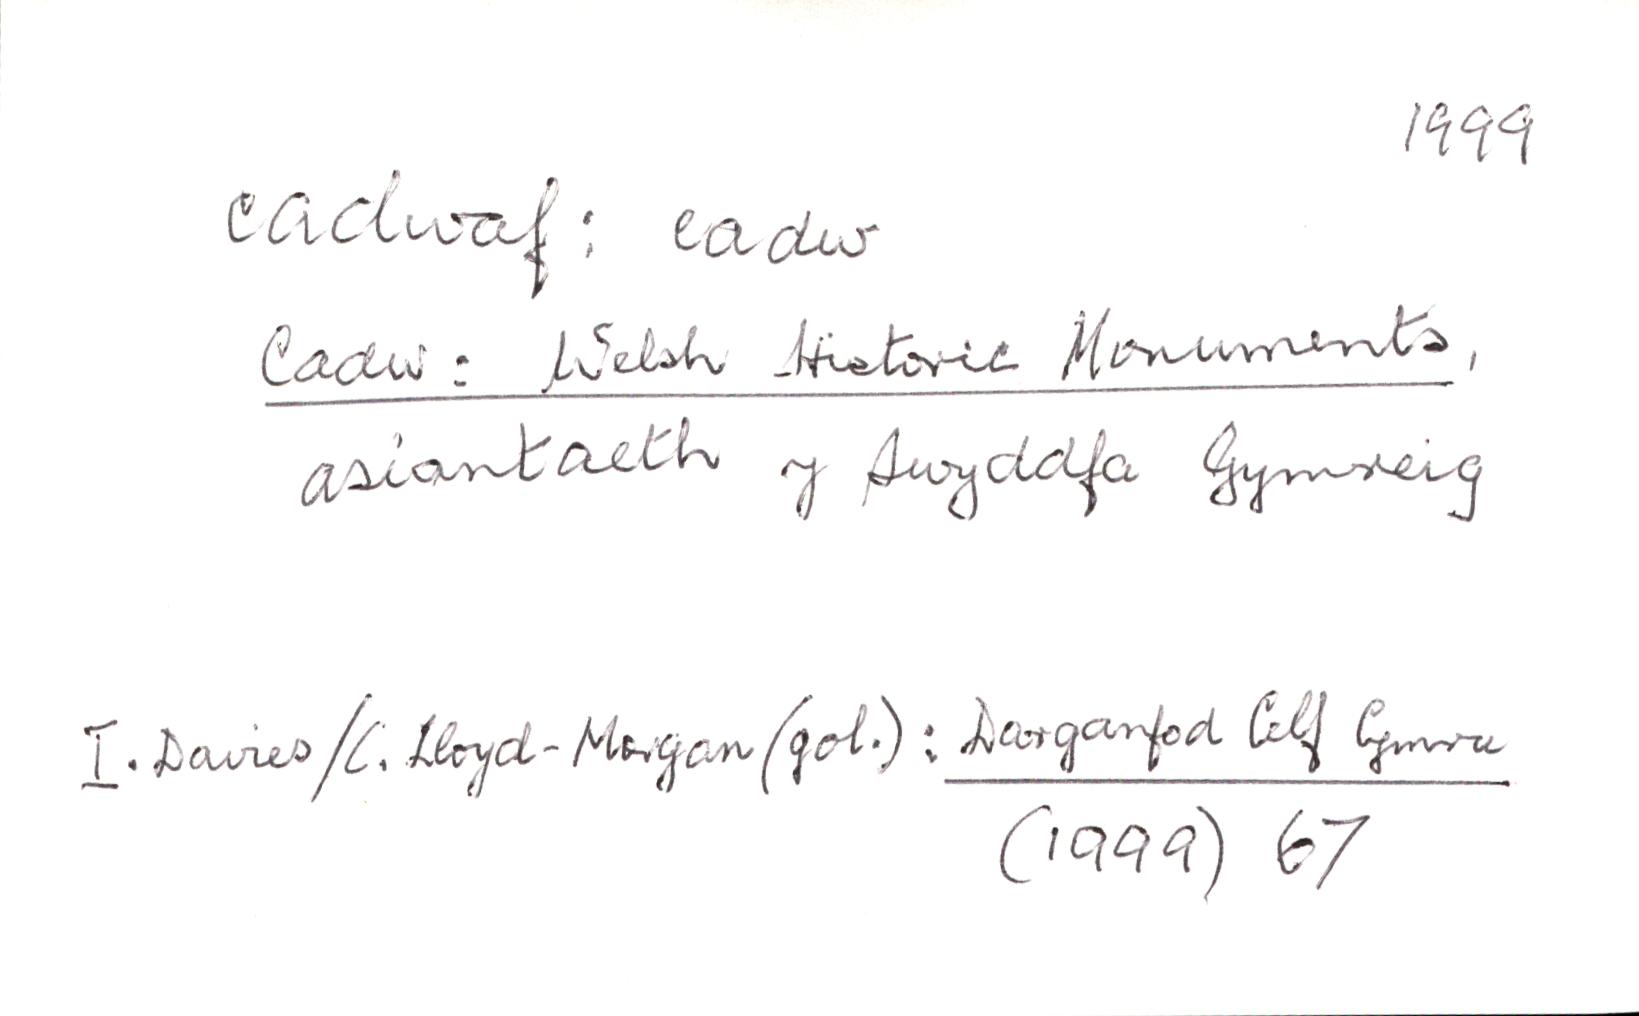 1999
cadwaf: cadw
Cadw: Welsh Historic Monuments,
asiantaeth y Swyddfa Gymreig
I. Davies/C. Lloyd-Morgan (gol.): Darganfod Celf Cymru
(1999) 67